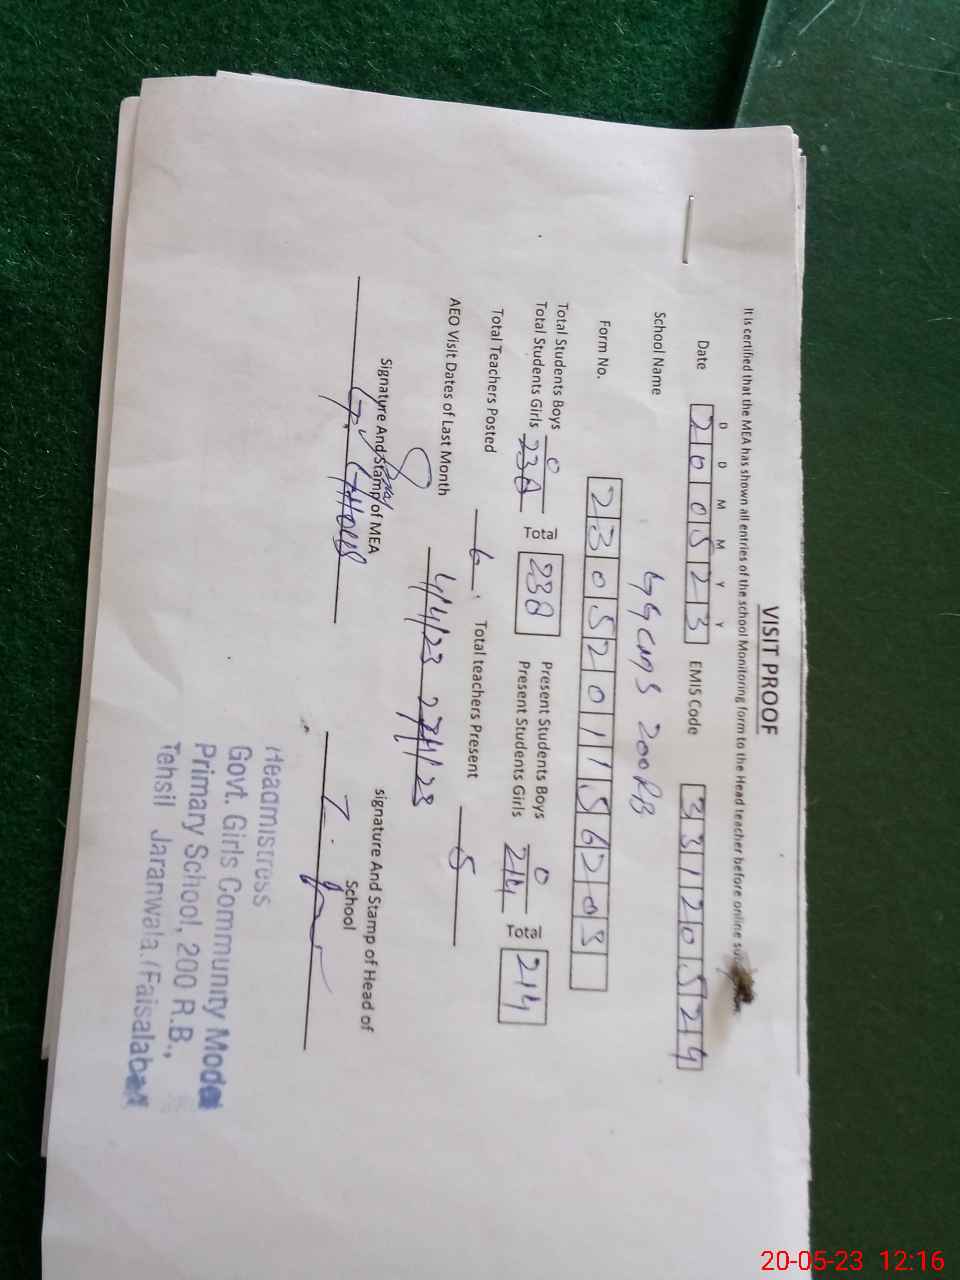 VISIT PROOF
It is certified that the MEA has shown all entries of the school Monitoring form to the Head teacher before online
D D M M Y Y
Date 200523 EMIS Code 33120524
School Name GGCMS 200RB
Form No. 2305201156203
Total Students Boys 0 Present Students Boys 0
Total Students Girls 238 Total 238 Present Students Girls 214 Total 214
Total Teachers Posted 6 Total teachers Present 5
AEO Visit Dates of Last Month 4/4/23 27/4/23
Signature And Stamp of MEA signature And Stamp of Head of
School
Headmistress
Govt. Girls Community Model
Primary School, 200 R.B.,
Tehsil Jaranwala. (Faisalabad
20-05-23 12:16